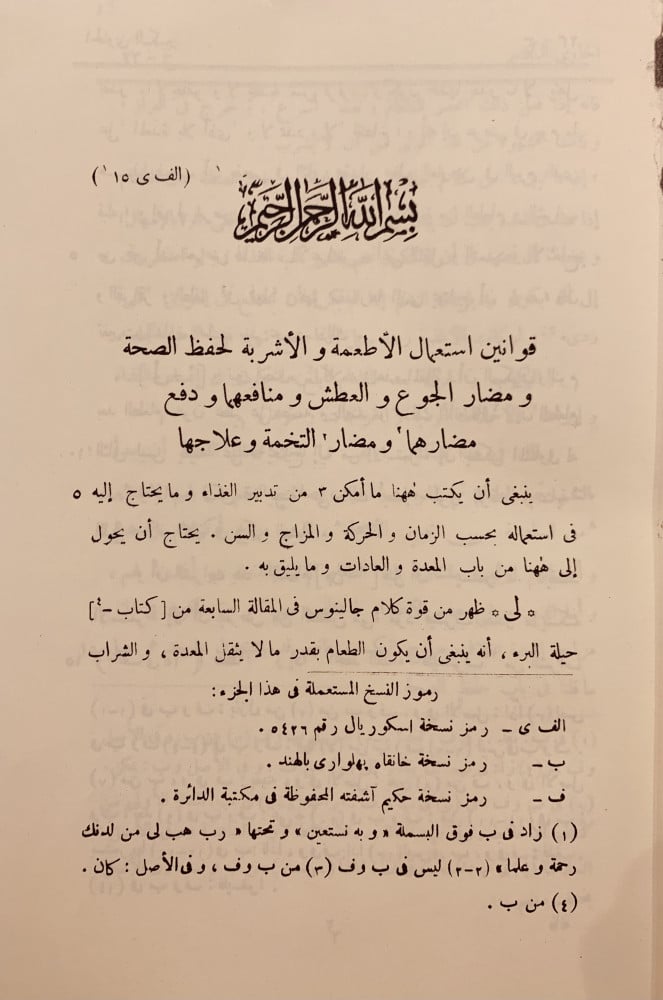 (الف ى ١٥ ١)
بسم الله الرحمن الرحيم ١
قوانين استعمال الأطعمة و الأشربة لحفظ الصحة
و مضار الجوع و العطش و منافعهما و دفع
مضارهما ٢ و مضار ٢ التخمة و علاجها
ينبغى أن يكتب هٰهنا ما أمكن ٣ من تدبير الغذاء و ما يحتاج إليه ٥
فى استعماله بحسب الزمان و الحركة و المزاج و السن . يحتاج أن يحول
إلى هٰهنا من باب المعدة و العادات و ما يليق به .
* لى * ظهر من قوة كلام جالينوس فى المقالة السابعة من [ كتاب -٤ ]
حيلة البرء ، أنه ينبغى أن يكون الطعام بقدر ما لا يثقل المعدة ، و الشراب
رموز النسخ المستعملة فى هذا الجزء :
الف ى – رمز نسخة اسكوريال رقم ٥٤٢٦ .
ب – رمز نسخة خانقاه پهلوارى بالهند .
ف – رمز نسخة حكيم آشفته المحفوظة فى مكتبة الدائرة .
(١) زاد فى ب فوق البسملة « و به نستعين » و تحتها « رب هب لى من لدنك
رحمة و علما » (٢-٢) ليس فى ب و ف (٣) من ب و ف ، و فى الأصل : كان .
(٤) من ب .